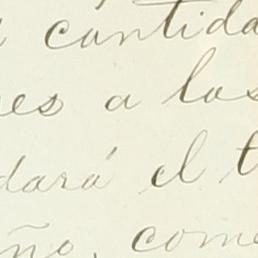 cantida
es a los
dará el t
ño, come